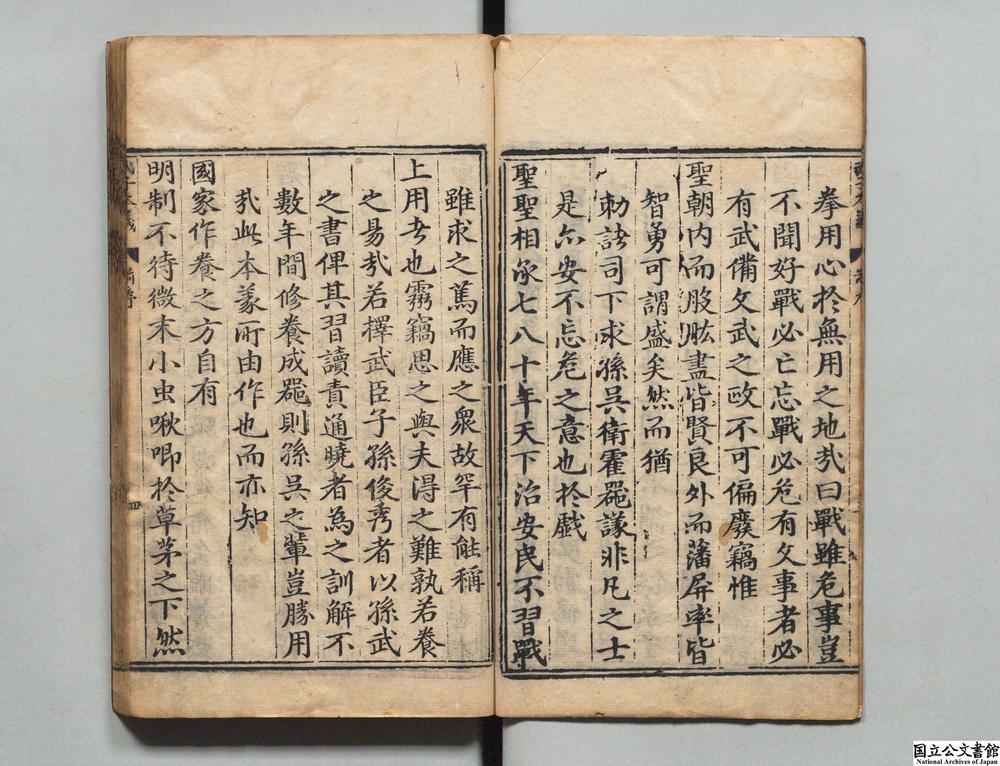 拳用心於無用之地㢤曰戰雖危事豈
不聞好戰必亡忘戰必危有文事者必
有武備文武之政不可偏廢竊惟
聖朝内而股肱盡皆賢良外而藩屏率皆
智勇可謂盛矣然而猶
勅諸司下求孫吳衛霍噐謀非凡之士
是亦安不忘危之意也於戲
聖聖相承七八十年天下治安民不習戰
雖求之篤而應之衆故罕有能稱
上用者也霧竊思之與夫得之難孰若養
之易㢤若擇武臣子孫俊秀者以孫武
之書俾其習讀責通曉者為之訓解不
數年間修養成噐則孫吳之輩豈勝用
㢤此本義所由作也而亦知
國家作養之方自有
明制不待微末小虫啾唧於草茅之下然
四
国立公文書館
National Archives of Japan